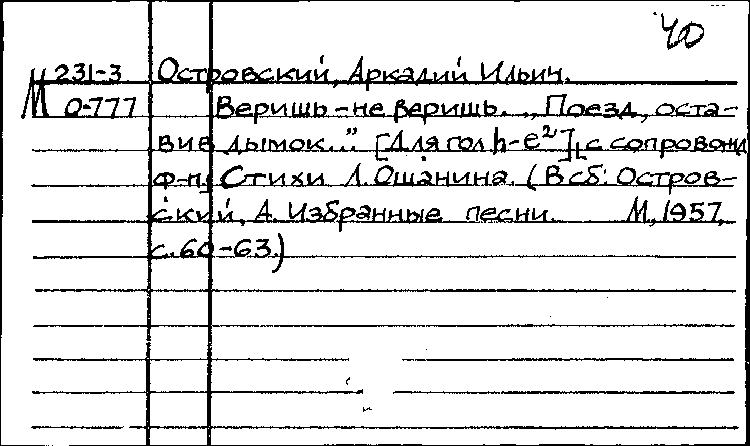 40
М 231-3 Островский, Аркадий Ильич.
О-777 Веришь-не веришь. „Поезд, оста-
вив дымок..." [Для гол h-e²], с сопровожд
ф-п, Стихи Л. Ошанина. (В сб: Остров-
ский, А. Избранные песни. М, 1957,
с. 60-63.)